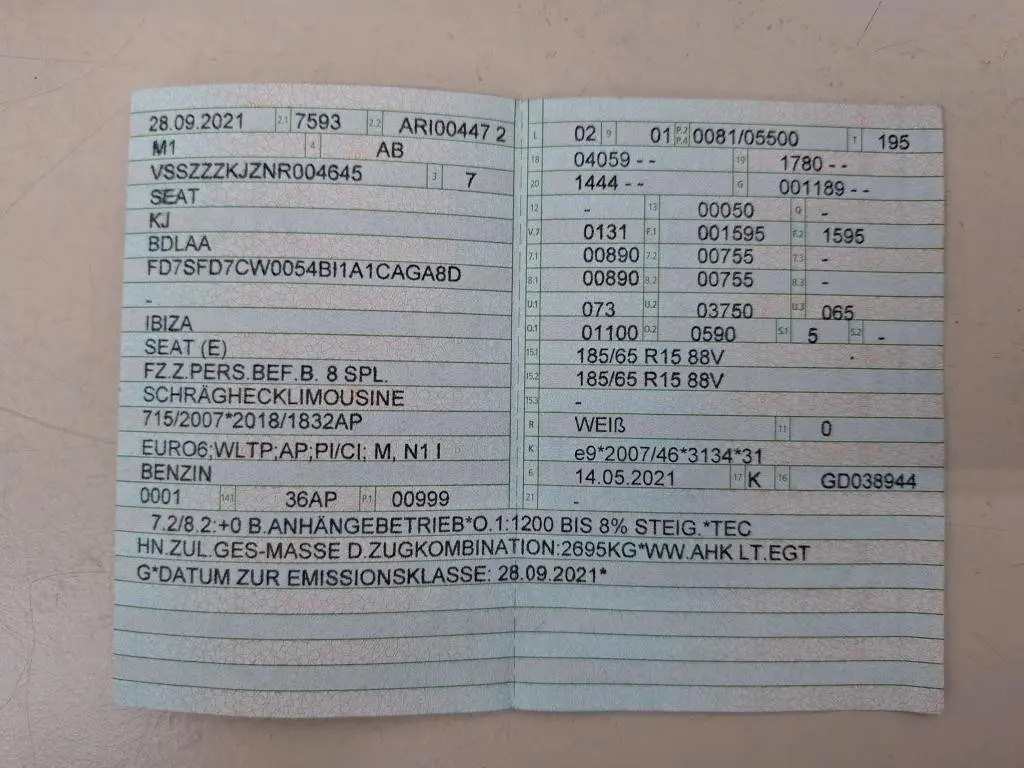 28.09.2021 2.1 7593 2.2 ARI00447 2
M1 4 AB
VSSZZZKJZNR004645 3 7
SEAT
KJ
BDLAA
FD7SFD7CW0054BI1A1CAGA8D
-
IBIZA
SEAT (E)
FZ.Z.PERS.BEF.B. 8 SPL.
SCHRÄGHECKLIMOUSINE
715/2007*2018/1832AP
EURO6;WLTP;AP;PI/CI; M, N1 I
BENZIN
0001 14.1 36AP P.1 00999
L 02 9 01 P.2 P.4 0081/05500 T 195
18 04059 - - 19 1780 - -
20 1444 - - G 001189 - -
12 - 13 00050 Q -
V.7 0131 F.1 001595 F.2 1595
7.1 00890 7.2 00755 7.3 -
8.1 00890 8.2 00755 8.3 -
U.1 073 U.2 03750 U.3 065
O.1 01100 O.2 0590 S.1 5 S.2 -
15.1 185/65 R15 88V
15.2 185/65 R15 88V
15.3 -
R WEIß 11 0
K e9*2007/46*3134*31
6 14.05.2021 17 K 16 GD038944
21 -
7.2/8.2:+0 B.ANHÄNGEBETRIEB*O.1:1200 BIS 8% STEIG.*TEC
HN.ZUL.GES-MASSE D.ZUGKOMBINATION:2695KG*WW.AHK LT.EGT
G*DATUM ZUR EMISSIONSKLASSE: 28.09.2021*